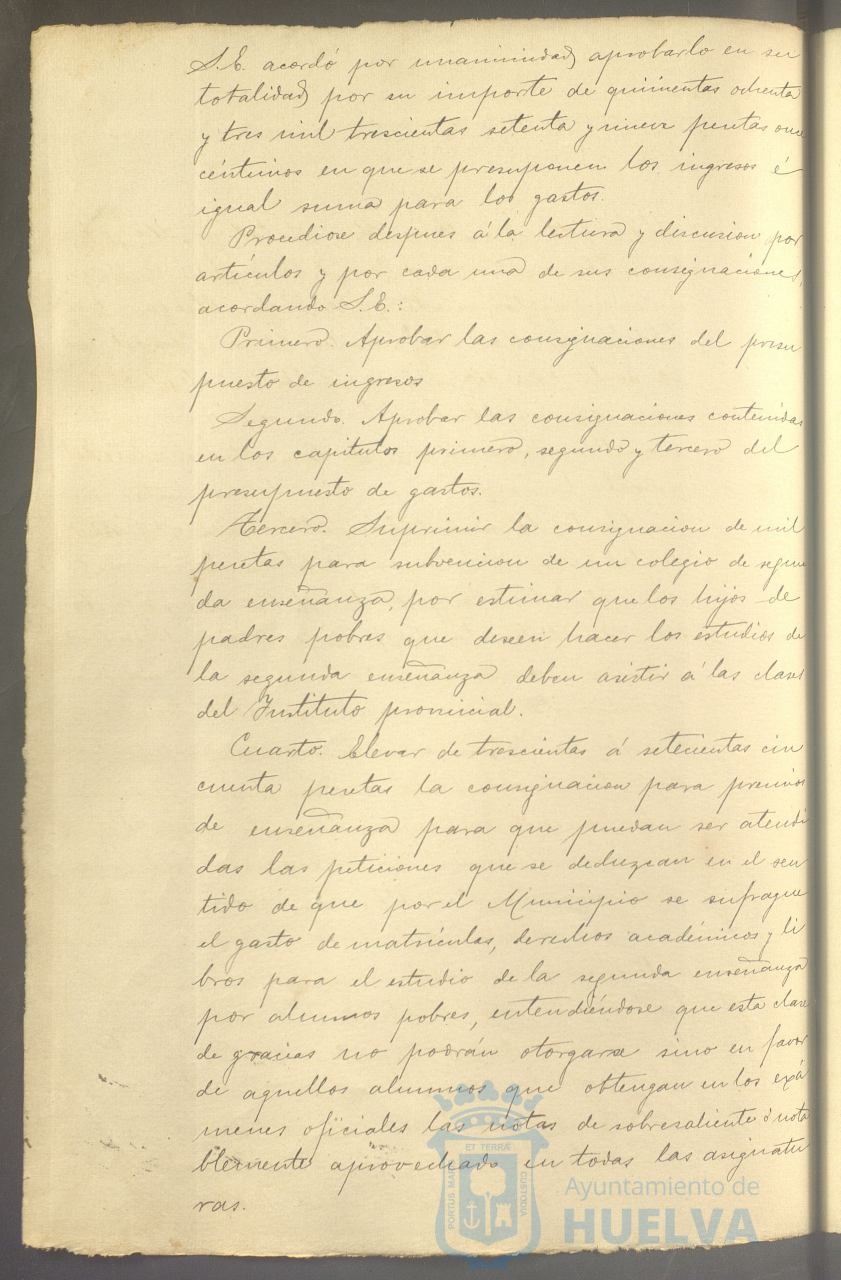 S.E. acordó por unanimidad aprobarlo en su
totalidad por su importe de quinientas ochenta
y tres mil trescientas setenta y nueve pesetas once
céntimos en que se presuponen los ingresos é
igual suma para los gastos.
Procediose despues á la lectura y discusion por
artículos y por cada una de sus consignaciones,
acordando S.E.:
Primero. Aprobar las consignaciones del presu
puesto de ingresos
Segundo. Aprobar las consignaciones contenidas
en los capitulos primero, segundo y tercero del
presupuesto de gastos.
Tercero. Suprimir la consignacion de mil
pesetas para subvencion de un colegio de segun
da enseñanza, por estimar que los hijos de
padres pobres que deseen hacer los estudios de
la segunda enseñanza deben asistir á las clases
del Instituto provincial.
Cuarto. Elevar de trescientas á setecientas cin
cuenta pesetas la consignacion para premios
de enseñanza para que puedan ser atendi
das las peticiones que se deduzcan en el sen
tido de que por el Municipio se sufrague
el gasto de matrículas, derechos académicos y li
bros para el estudio de la segunda enseñanza
por alumnos pobres, entendiéndose que esta clase
de gracias no podrán otorgarse sino en favor
de aquellos alumnos que obtengan en los exá
menes oficiales las notas de sobresaliente ó nota
blemente aprovechado en todas las asignatu
ras.
PORTUS MARIS
ET TERRÆ
CUSTODIA
Ayuntamiento de
HUELVA